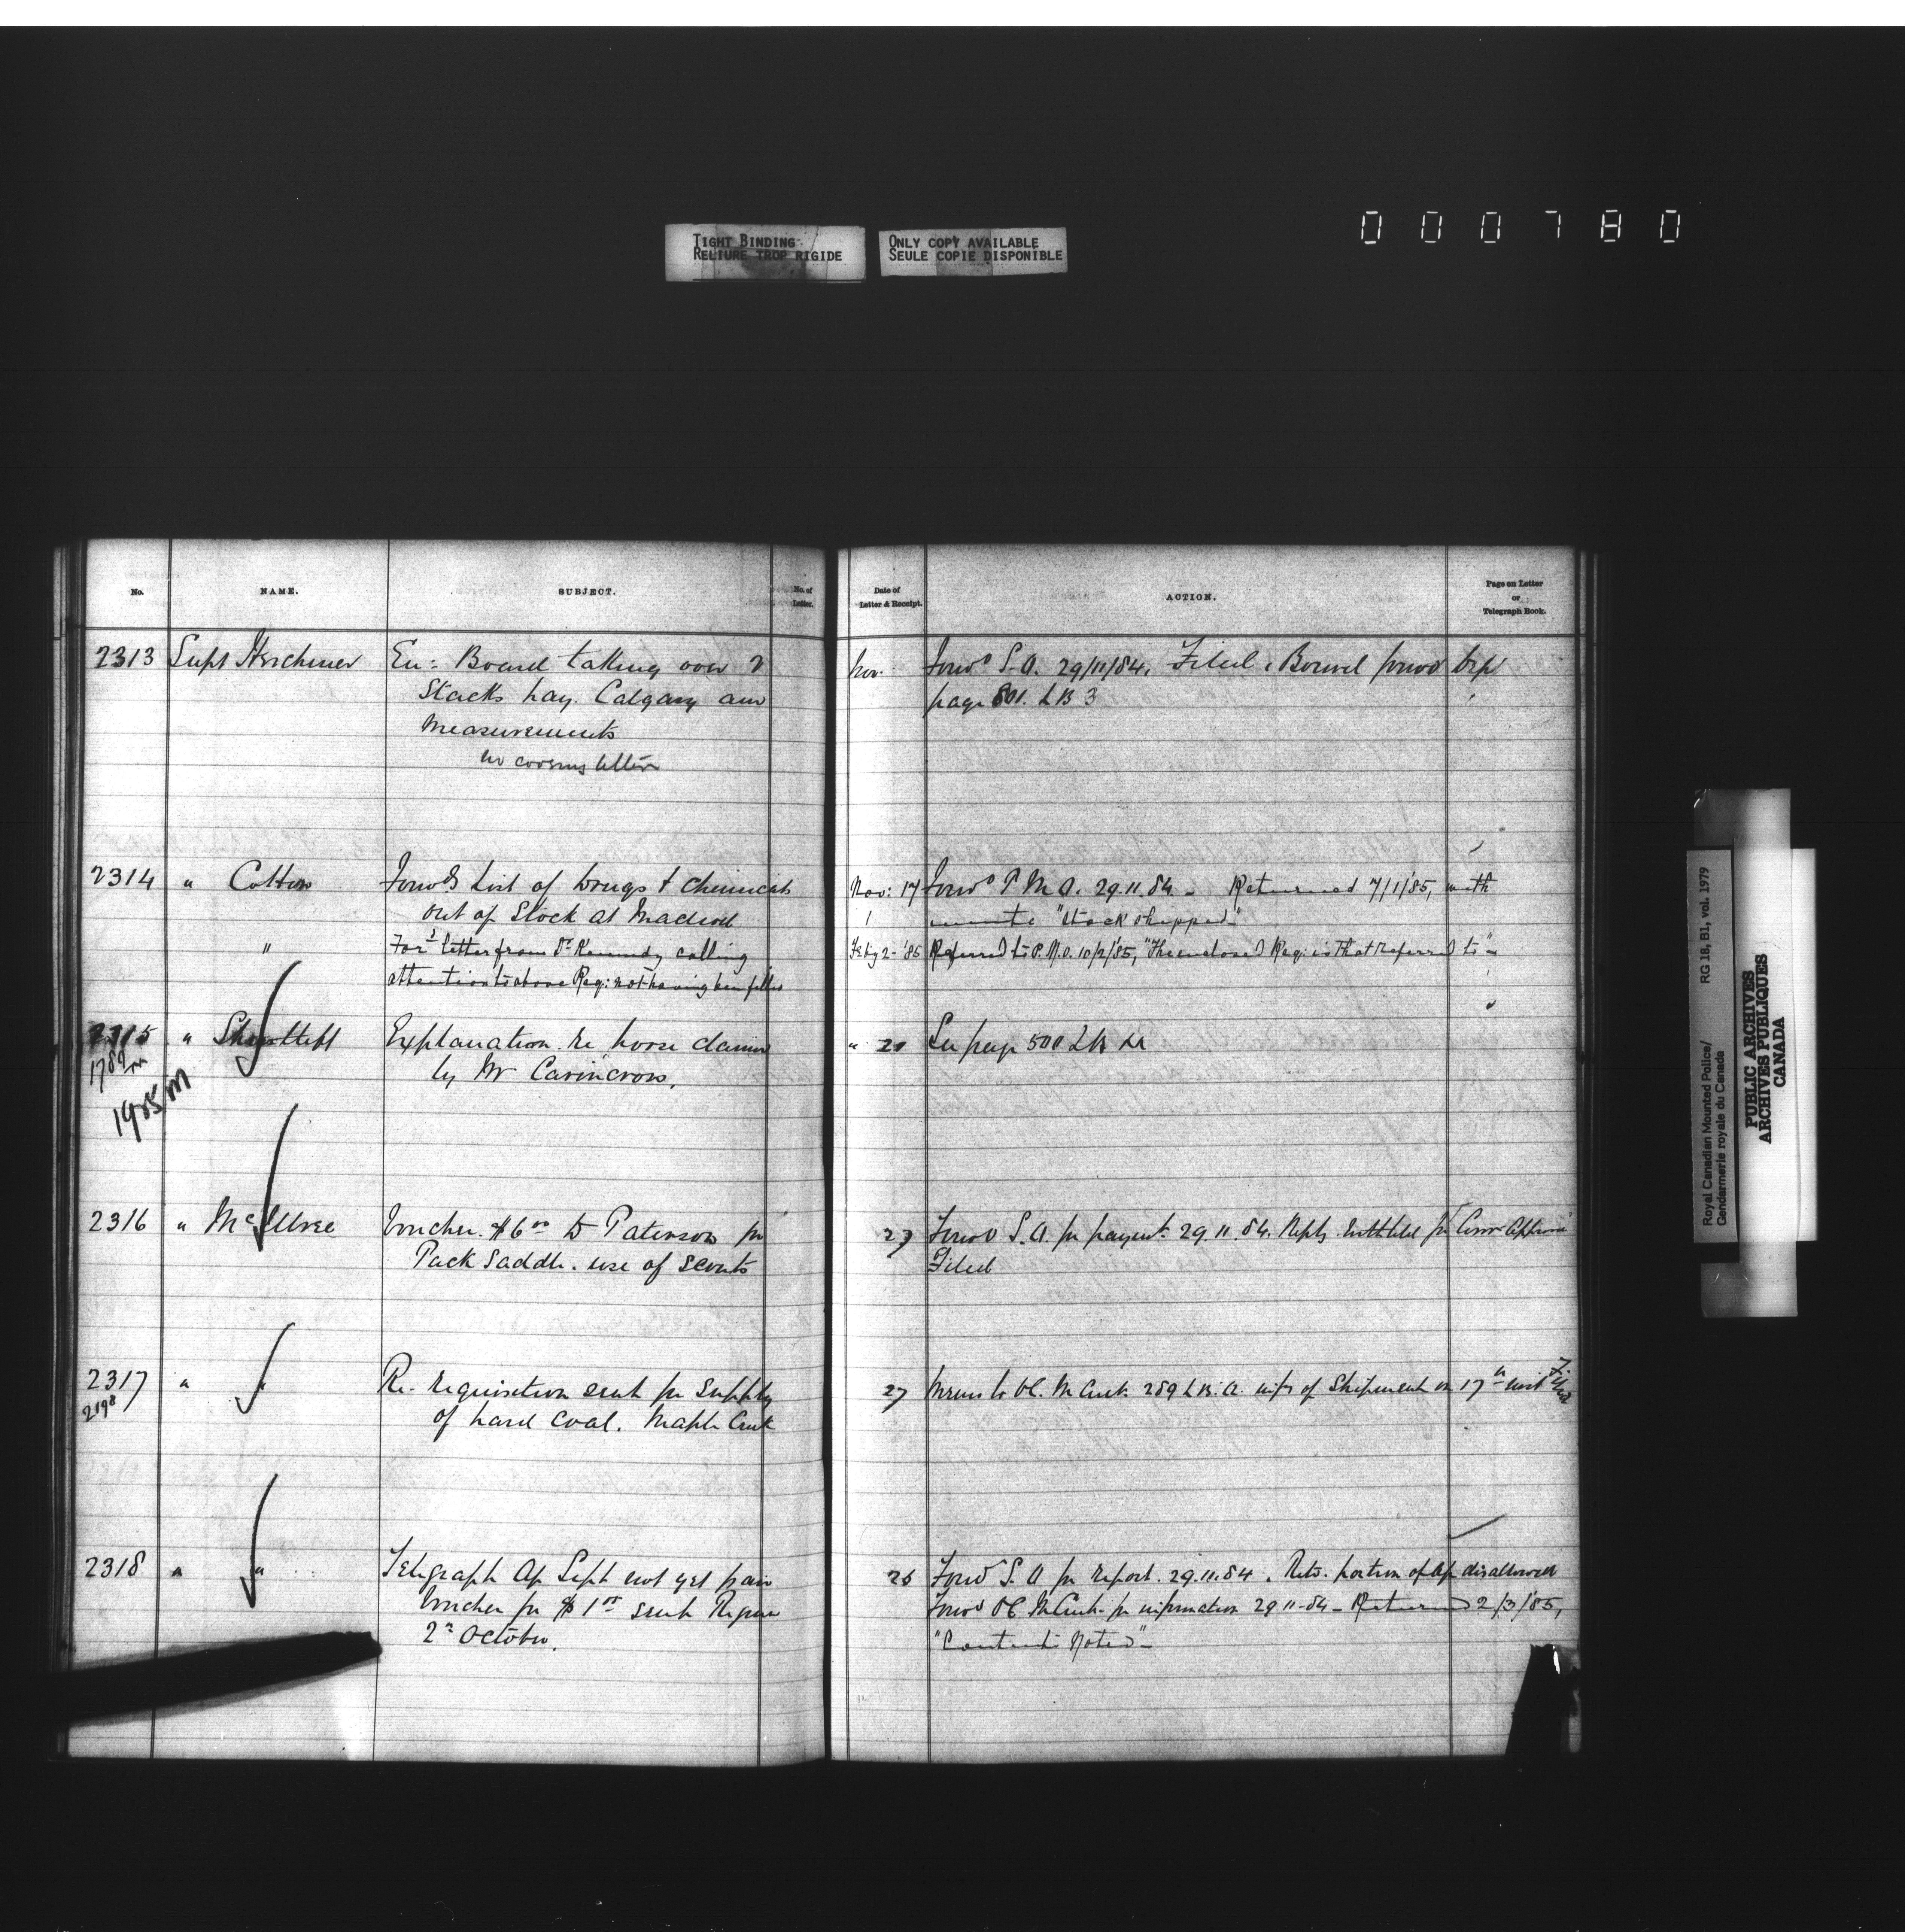 000780
TIGHT BINDING
RELIURE TROP RIGIDE
ONLY COPY AVAILABLE
SEULE COPIE DISPONIBLE
No.
NAME.
SUBJECT.
No. of
Letter.
Date of
Letter & Receipt.
ACTION.
Page on Letter
or
Telegraph Book.
2313 Supt Herchmer
En: Board taking over 2
Stacks hay. Calgary
Measurements
no covering letter
Nov.
Forwd S.A. 29/11/84. Filed. Board
page 801. LB 3
2314 " Cotton
Forwds List of Drugs & Chemicals
out of Stock at Macleod
Nov: 17
Forwd P.M.O. 29.11.84 - Returned 7/1/85, with
minute "Stock shipped"
"
Ford letter from Dr Kennedy calling
attention to above Req: not having been filled
Feby 2 - '85
Referred to P.M.O. 10/2/85, "The enclosed Req: is that referred to"
2315 "
1789 m
1985 m
Explanation re horse claimed
by Mr
" 21
See page 500 LB
2316 " McIllree
Voucher $6.00 to Paterson for
Pack Saddle. use of Scouts
27
Forwd S.A. for payment 29.11.84.
Filed
2317 " "
2198
Re. requisition sent for supply
of hard coal. Maple Creek
27
289 LB. of Shipment on 17th
Filed
2318 " "
Telegraph Ap Sept not yet paid
Voucher for $1.00 sent Regina
2nd October.
26
Forwd S.A. for report. 29.11.84. portion of ap disallowed
Forwd for information 29 11-84 - Returned 2/3/85,
"Contents Noted" -
Royal Canadian Mounted Police/ RG 18, B1, vol. 1979
Gendarmerie royale du Canada
PUBLIC ARCHIVES
ARCHIVES PUBLIQUES
CANADA